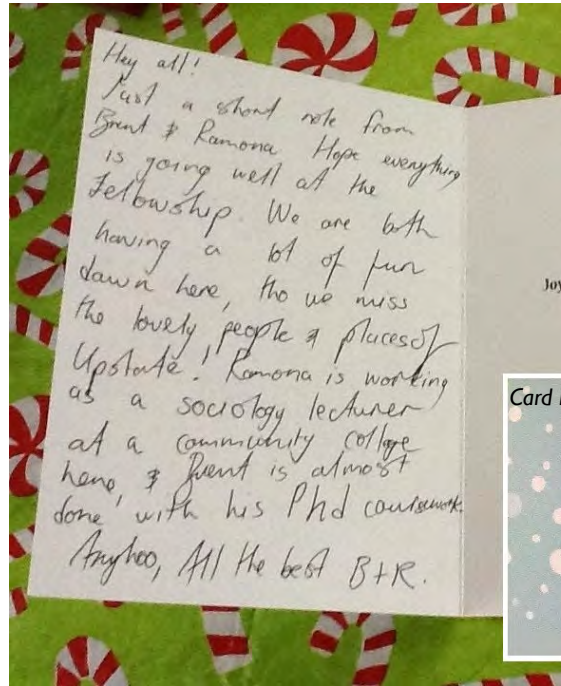 Hey all!
Just a short note from
Brent & Ramona Hope everything
is going well at the
Fellowship. We are both
having a lot of fun
down here, tho we miss
the lovely people & places of
Upstate! Ramona is working
as a sociology lecturer
at a community college
here, & Brent is almost
done with his Phd coursework.
Anyhoo, All the best B+R.
Joy
Card